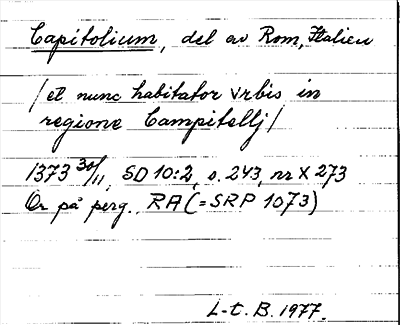 Capitolium, del av Rom, Italien
/et nunc habitator vrbis in
regione Campitellj/
1373 30/11, SD 10:2, s. 243, nr X 273
Or på perg., RA (=SRP 1073)
L-t. B. 1977.